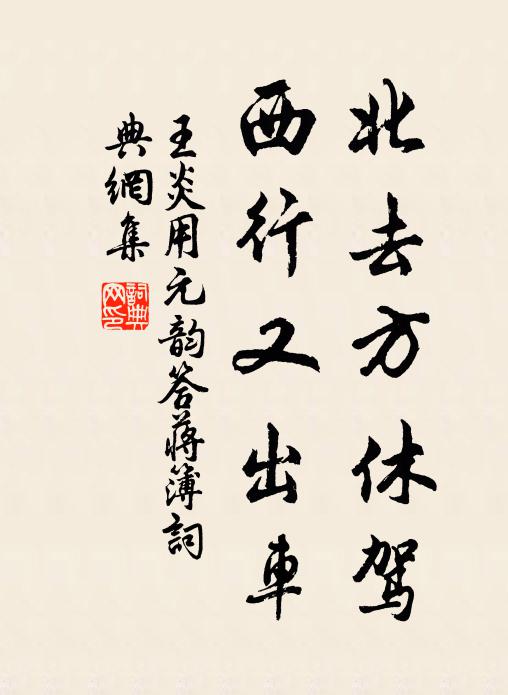 北去方休驾
西行又出車
王炎用元韵答蒋簿詞
典網集
詞典网印